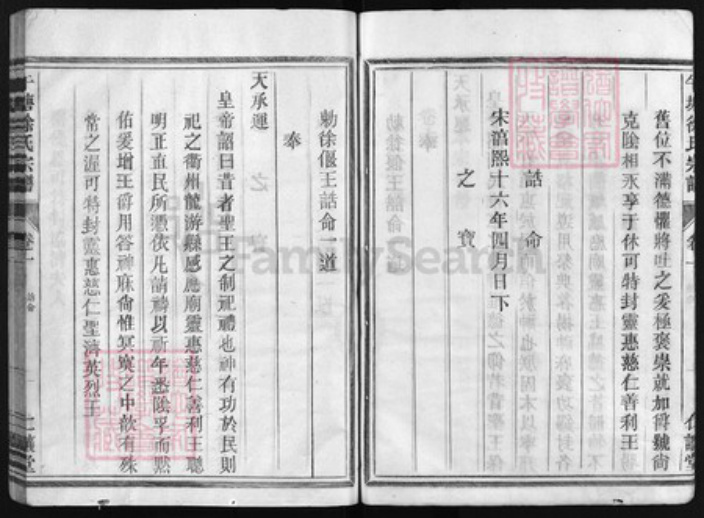 舊位不滿德懼將吐之爰極褒崇就加爵號尙
克陰相永享于休可特封靈惠慈仁善利王
誥命
宋湻熙十六年四月日下
之寶
勅徐偃王誥命一道
奉
天承運
皇帝詔曰昔者聖王之制祀禮也神有功於民則
祀之衢州龍游縣感應廟靈惠慈仁善利王聰
明正直民所憑依凡請禱以祈年悉陰孚而默
佑爰增王爵用答神庥尙惟冥冥之中歆有殊
常之渥可特封靈惠慈仁聖濟英烈王
徐氏宗譜
卷一
誥命
仁讓堂
FamilySearch